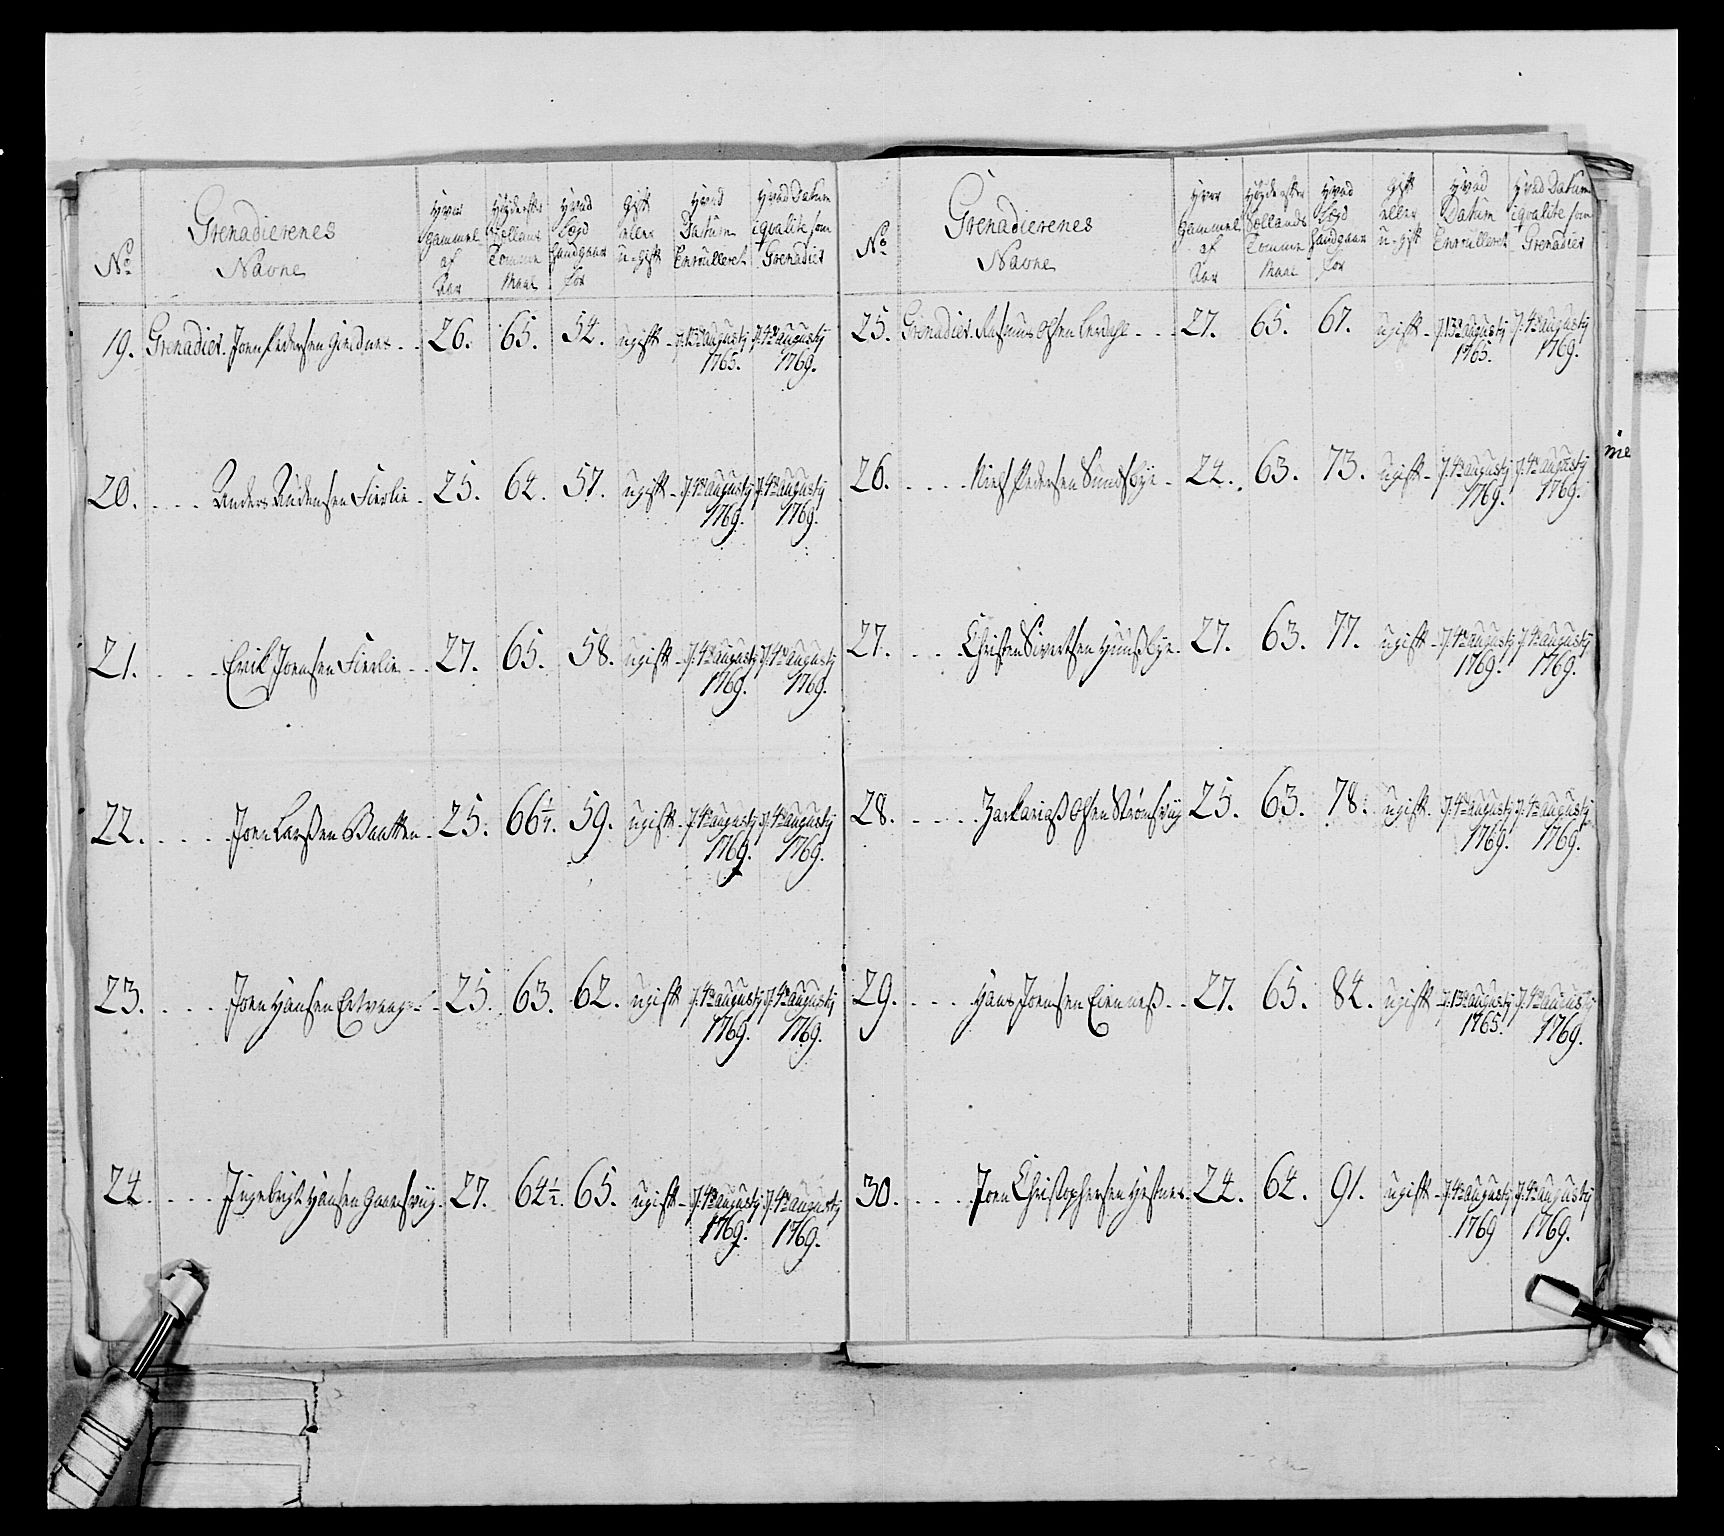 No Grenadierenes Navne Hvor Gammel af Aar Høyde efter Sollans Tomme Maal Hvad Lægd Handgaar for Gift eller u-gift Hvad Datum Enroulleret Hvad Datum i qvalite som Grenadier
19. Grenadier. Joen Pedersen - - 26. 65. 54. ugift - d. 13de augustij 1765. d. 4de augustij 1769.
20. - - - - Anders Fierlie - 25. 64. 57. ugift - d. 4de augustij 1769. d. 4de augustij 1769.
21. - - - Erik Joensen Fierlie - - 27. 65. 58. ugift - d. 4de augustij 1769. d. 4de augustij 1769.
22. - - - - Joen Larßen Baatten - 25. 66 1/4. 59. ugift - d. 4de augustij 1769. d. 4de augustij 1769.
23. - - - - Joen Hansen - - 25. 63. 62. ugift - d. 4de augustij 1769. d. 4de augustij 1769.
24. - - - - Ingebrigt Hansen - 27. 64 1/2. 65. ugift - d. 4de augustij 1769. d. 4de augustij 1769.
No Grenadierenes Navne Hvor Gammel af Aar Høyde efter Sollands Tomme Maal Hvad Lægd Handgaar for Gift eller u-gift Hvad Datum Enroulleret Hvad Datum i qvalite som Grenadier
25. Grenadier. Rasmus Olsen Lerdahl - - - 27. 65. 67. ugift - d. 13de augustij 1765. d. 4de augustij 1769.
26. - - - - Niels Pedersen Sundsbye - 24. 63. 73. ugift - d. 4de augustij 1769. d. 4de augustij 1769.
27. - - - Christen Sivertsen Huusbye - 27. 63. 77. ugift - d. 4de augustij 1769. d. 4de augustij 1769.
28. - - - - Zackariaß Olsen Strømsviig 25. 63. 78. ugift - d. 4de augustij 1769. d. 4de augustij 1769.
29. - - - - Hans Joensen Eieneß - - 27. 65. 84. ugift - d. 13de augustij 1765. d. 4de augustij 1769.
30. - - - - Joen Christophersen Hestnes - 24. 64. 91. ugift - d. 4de augustij 1769 d. 4de augustij 1769.